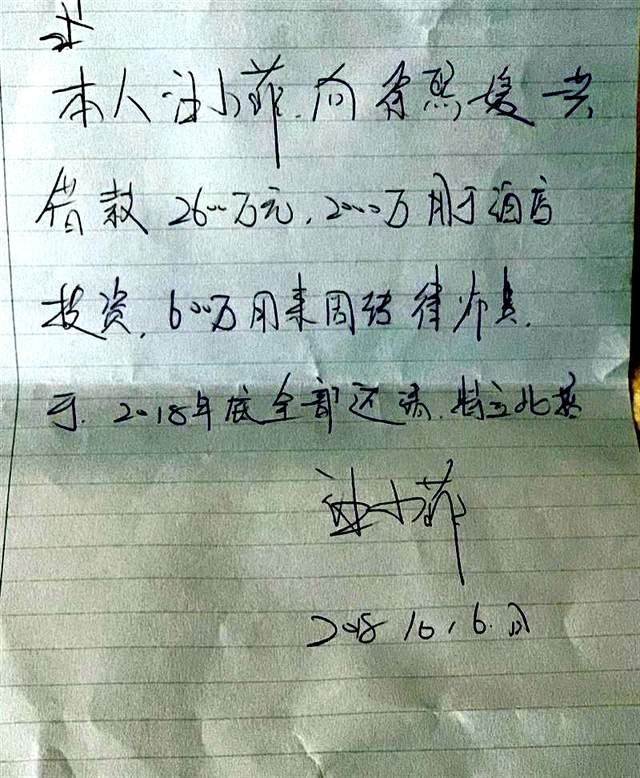 本人汪小菲.向徐熙媛共
借款2600万元.2000万用于酒店
投资.600万用来周转律师费.
于.2018年底全部还清.特立此据
汪小菲
2018 10.6.日